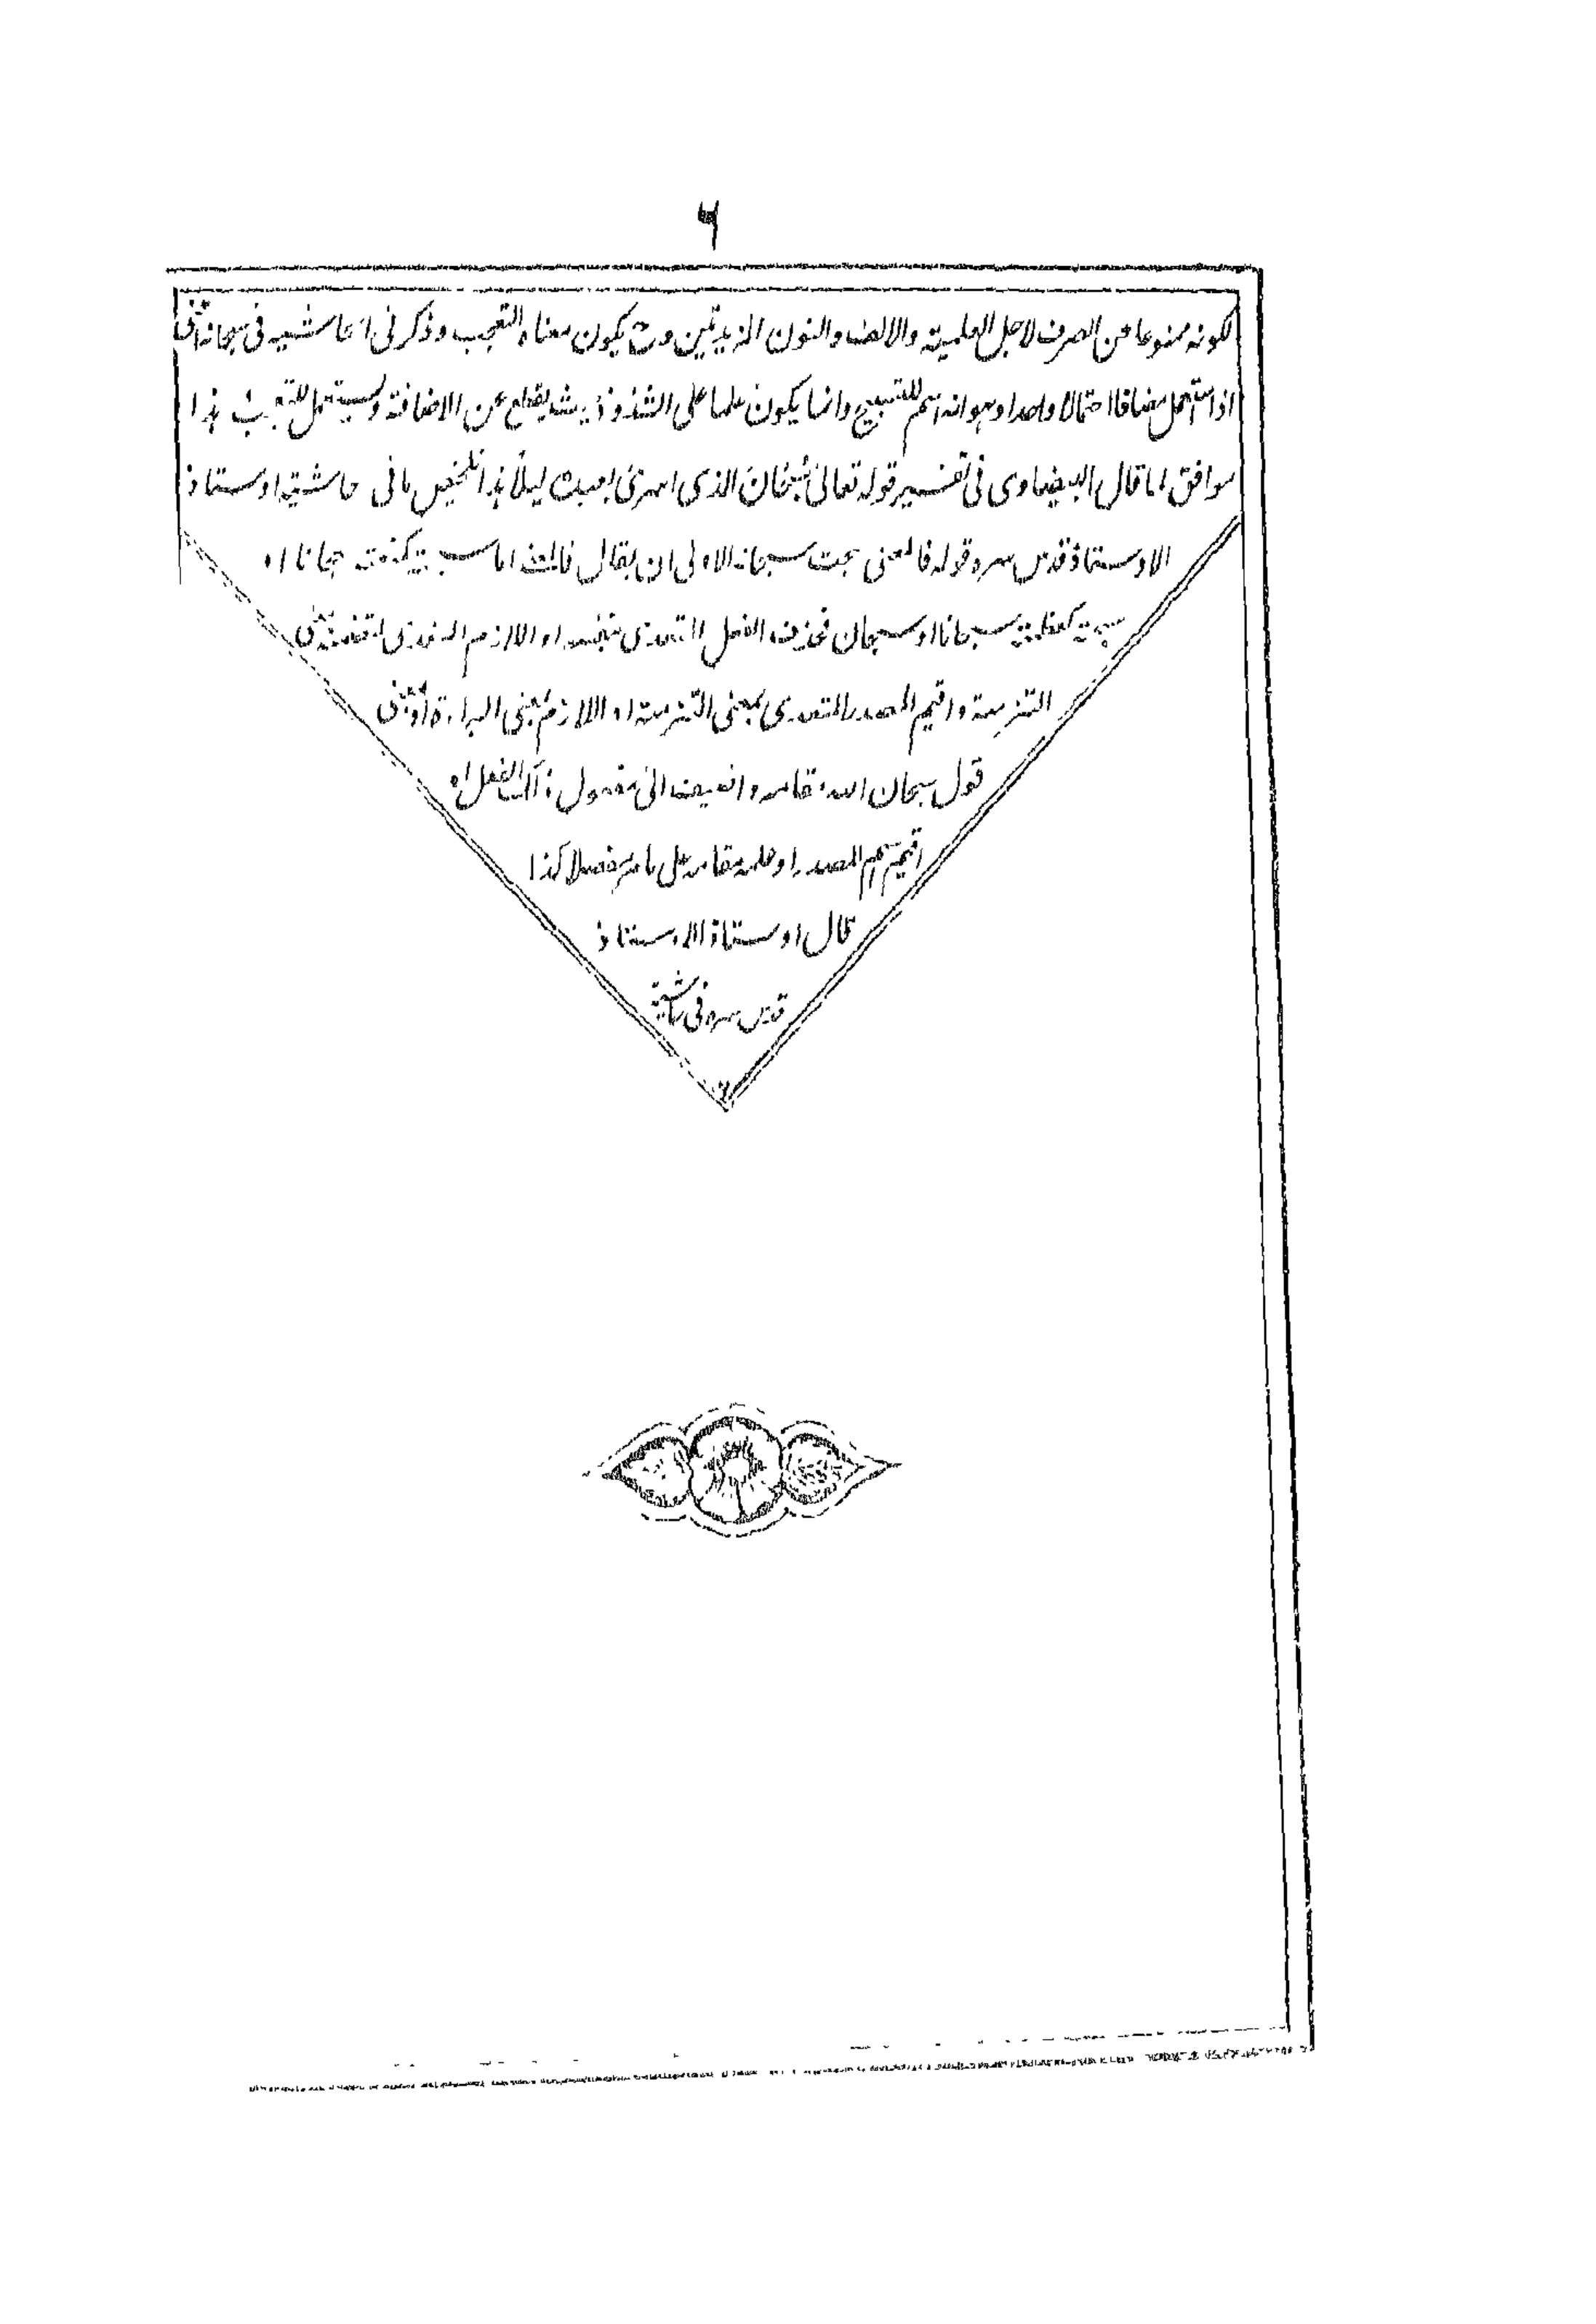 ٦
لكونه ممنوعا عن الصرف لاجل العلمية والالف والنون المزيدتين وح يكون معناه التعجب وذكر فى الحاشيه فى سبحانه
اذا استعمل مضافا احتمالا واحدا وهو انه اسم للتسبيح وانما يكون علما على الشذوذ يقطع عن الاضافة ويستعمل للتعجب هذا
موافق لما قال البيضاوى فى تفسير قوله تعالى سُبْحَانَ الذى اسرى بعبده ليلاً هذا تلخيص ما فى حاشية اوستاذ
الاوستاذ قدس سره قوله فالمعنى سبحت سبحانه الاولى ان يقال فالمعنى اما سبحته سبحانا او
سبحانا او سبحان فحذف الفعل المتعدى او اللازم
التنزيه واقيم المصدر المتعدى بمعنى التنزيه او اللازم بمعنى البراءة
قول سبحان الله مقامه واضيف الى مفعول ذلك الفعل او
اقيم اسم المصدر او علمه مقامه على ما مر مفصلا كذا
قال اوستاذ الاوستاذ
قدس سره فى حاشية